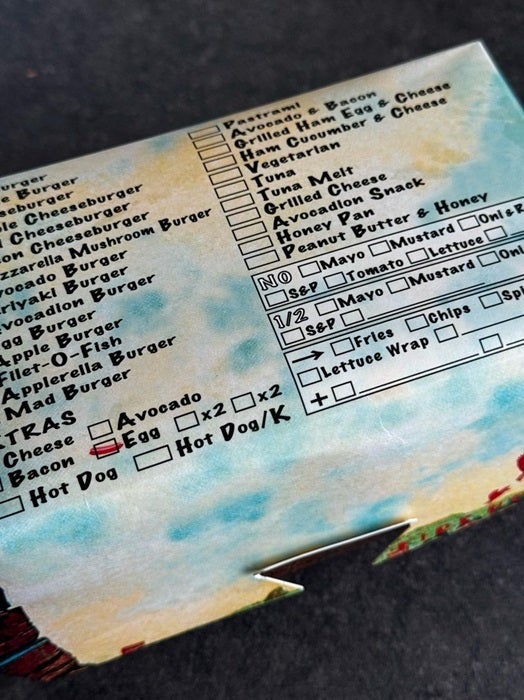 Burger
Burger
Cheeseburger
Cheeseburger
Cheeseburger
Mushroom Burger
Burger
Burger
Avocadion Burger
Burger
Apple Burger
Filet-O-Fish
Applerella Burger
Mad Burger
Cheese
Bacon
Avocado
Egg x2 x2
Hot Dog Hot Dog/K
Pastrami
Avocado & Bacon
Grilled Ham Egg & Cheese
Ham Cucumber & Cheese
Vegetarian
Tuna
Tuna Melt
Grilled Cheese
Avocadion Snack
Honey Pan
Peanut Butter & Honey
NO Mayo Mustard
S&P Tomato Lettuce
1/2 Mayo Mustard
S&P
→ Fries Chips
Lettuce Wrap
+